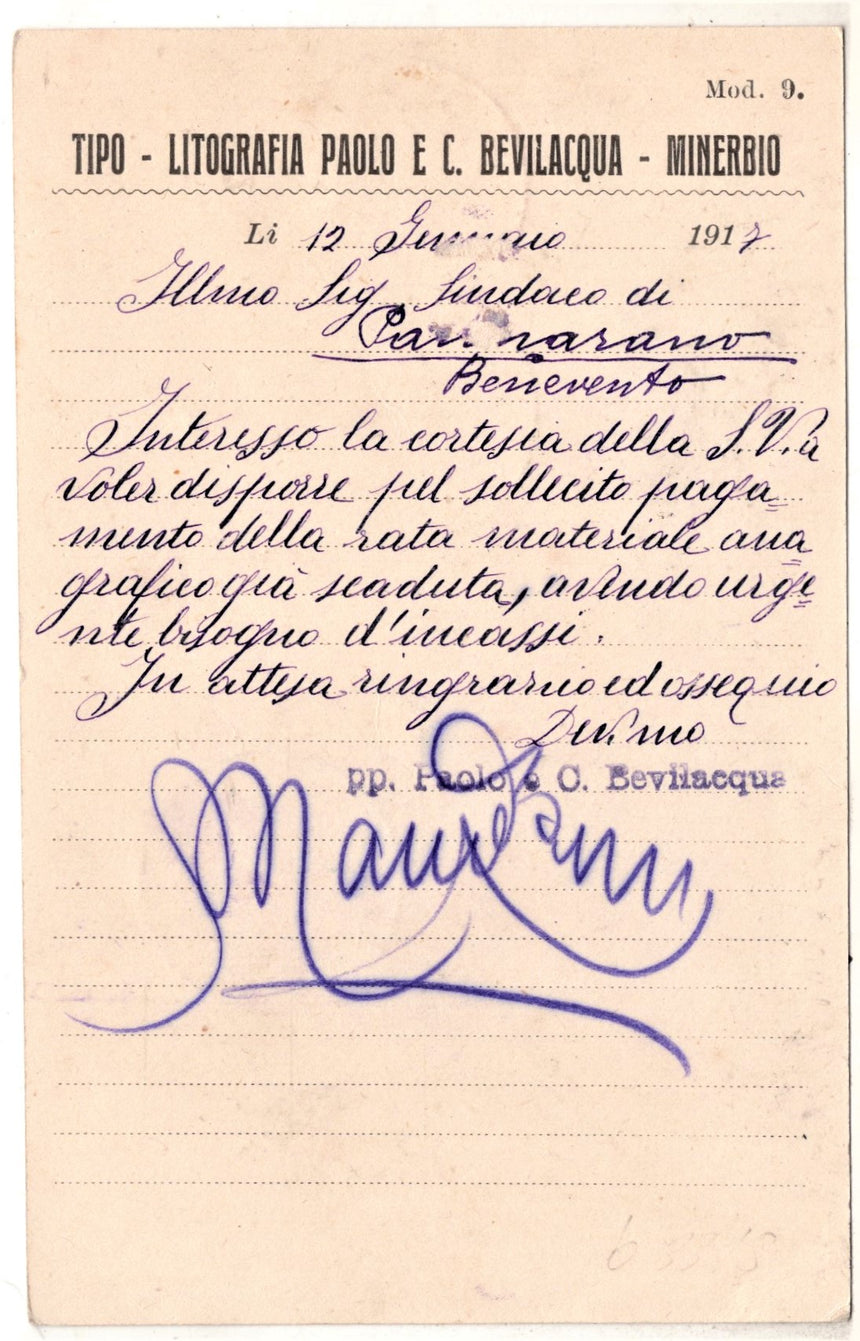 Mod. 9.
TIPO - LITOGRAFIA PAOLO E C. BEVILACQUA - MINERBIO
Li 12 Gennaio 1917
Illmo Sig. Sindaco di
Pannarano
Benevento
Interesso la cortesia della S.V. a
voler disporre pel sollecito paga=
mento della rata materiale ana=
grafico già scaduta, avendo urge=
nte bisogno d'incassi.
In attesa ringrazio ed ossequio
Devmo
pp. Paolo e C. Bevilacqua